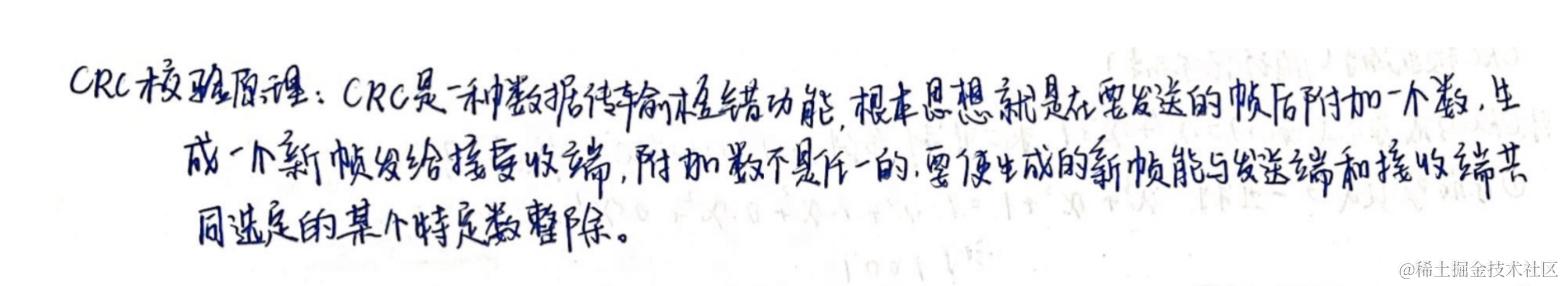 CRC校验原理：CRC是一种数据传输检错功能，根本思想就是在要发送的帧后附加一个数，生
成一个新帧发给接受收端，附加数不是任一的，要使生成的新帧能与发送端和接收端共
同选定的某个特定数整除。
@稀土掘金技术社区